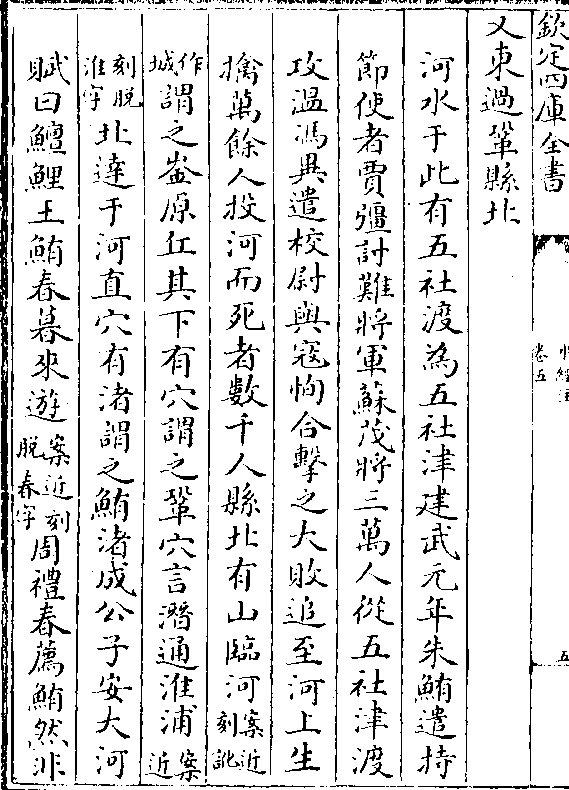 欽定四庫全書
卷五
五
又東過鞏縣北
河水于此有五社渡為五社津建武元年朱鮪遣持
節使者賈彊討難將軍蘇茂將三萬人從五社津渡
攻溫馮異遣校尉與寇恂合擊之大敗追至河上生
擒萬餘人投河而死者數千人縣北有山臨河案近刻訛
作城謂之崟原丘其下有穴謂之鞏穴言潛通淮浦案近
刻脫淮字北達于河直穴有渚謂之鮪渚成公子安大河
賦曰鱣鯉王鮪春暮來遊案近刻脫春字周禮春薦鮪然非